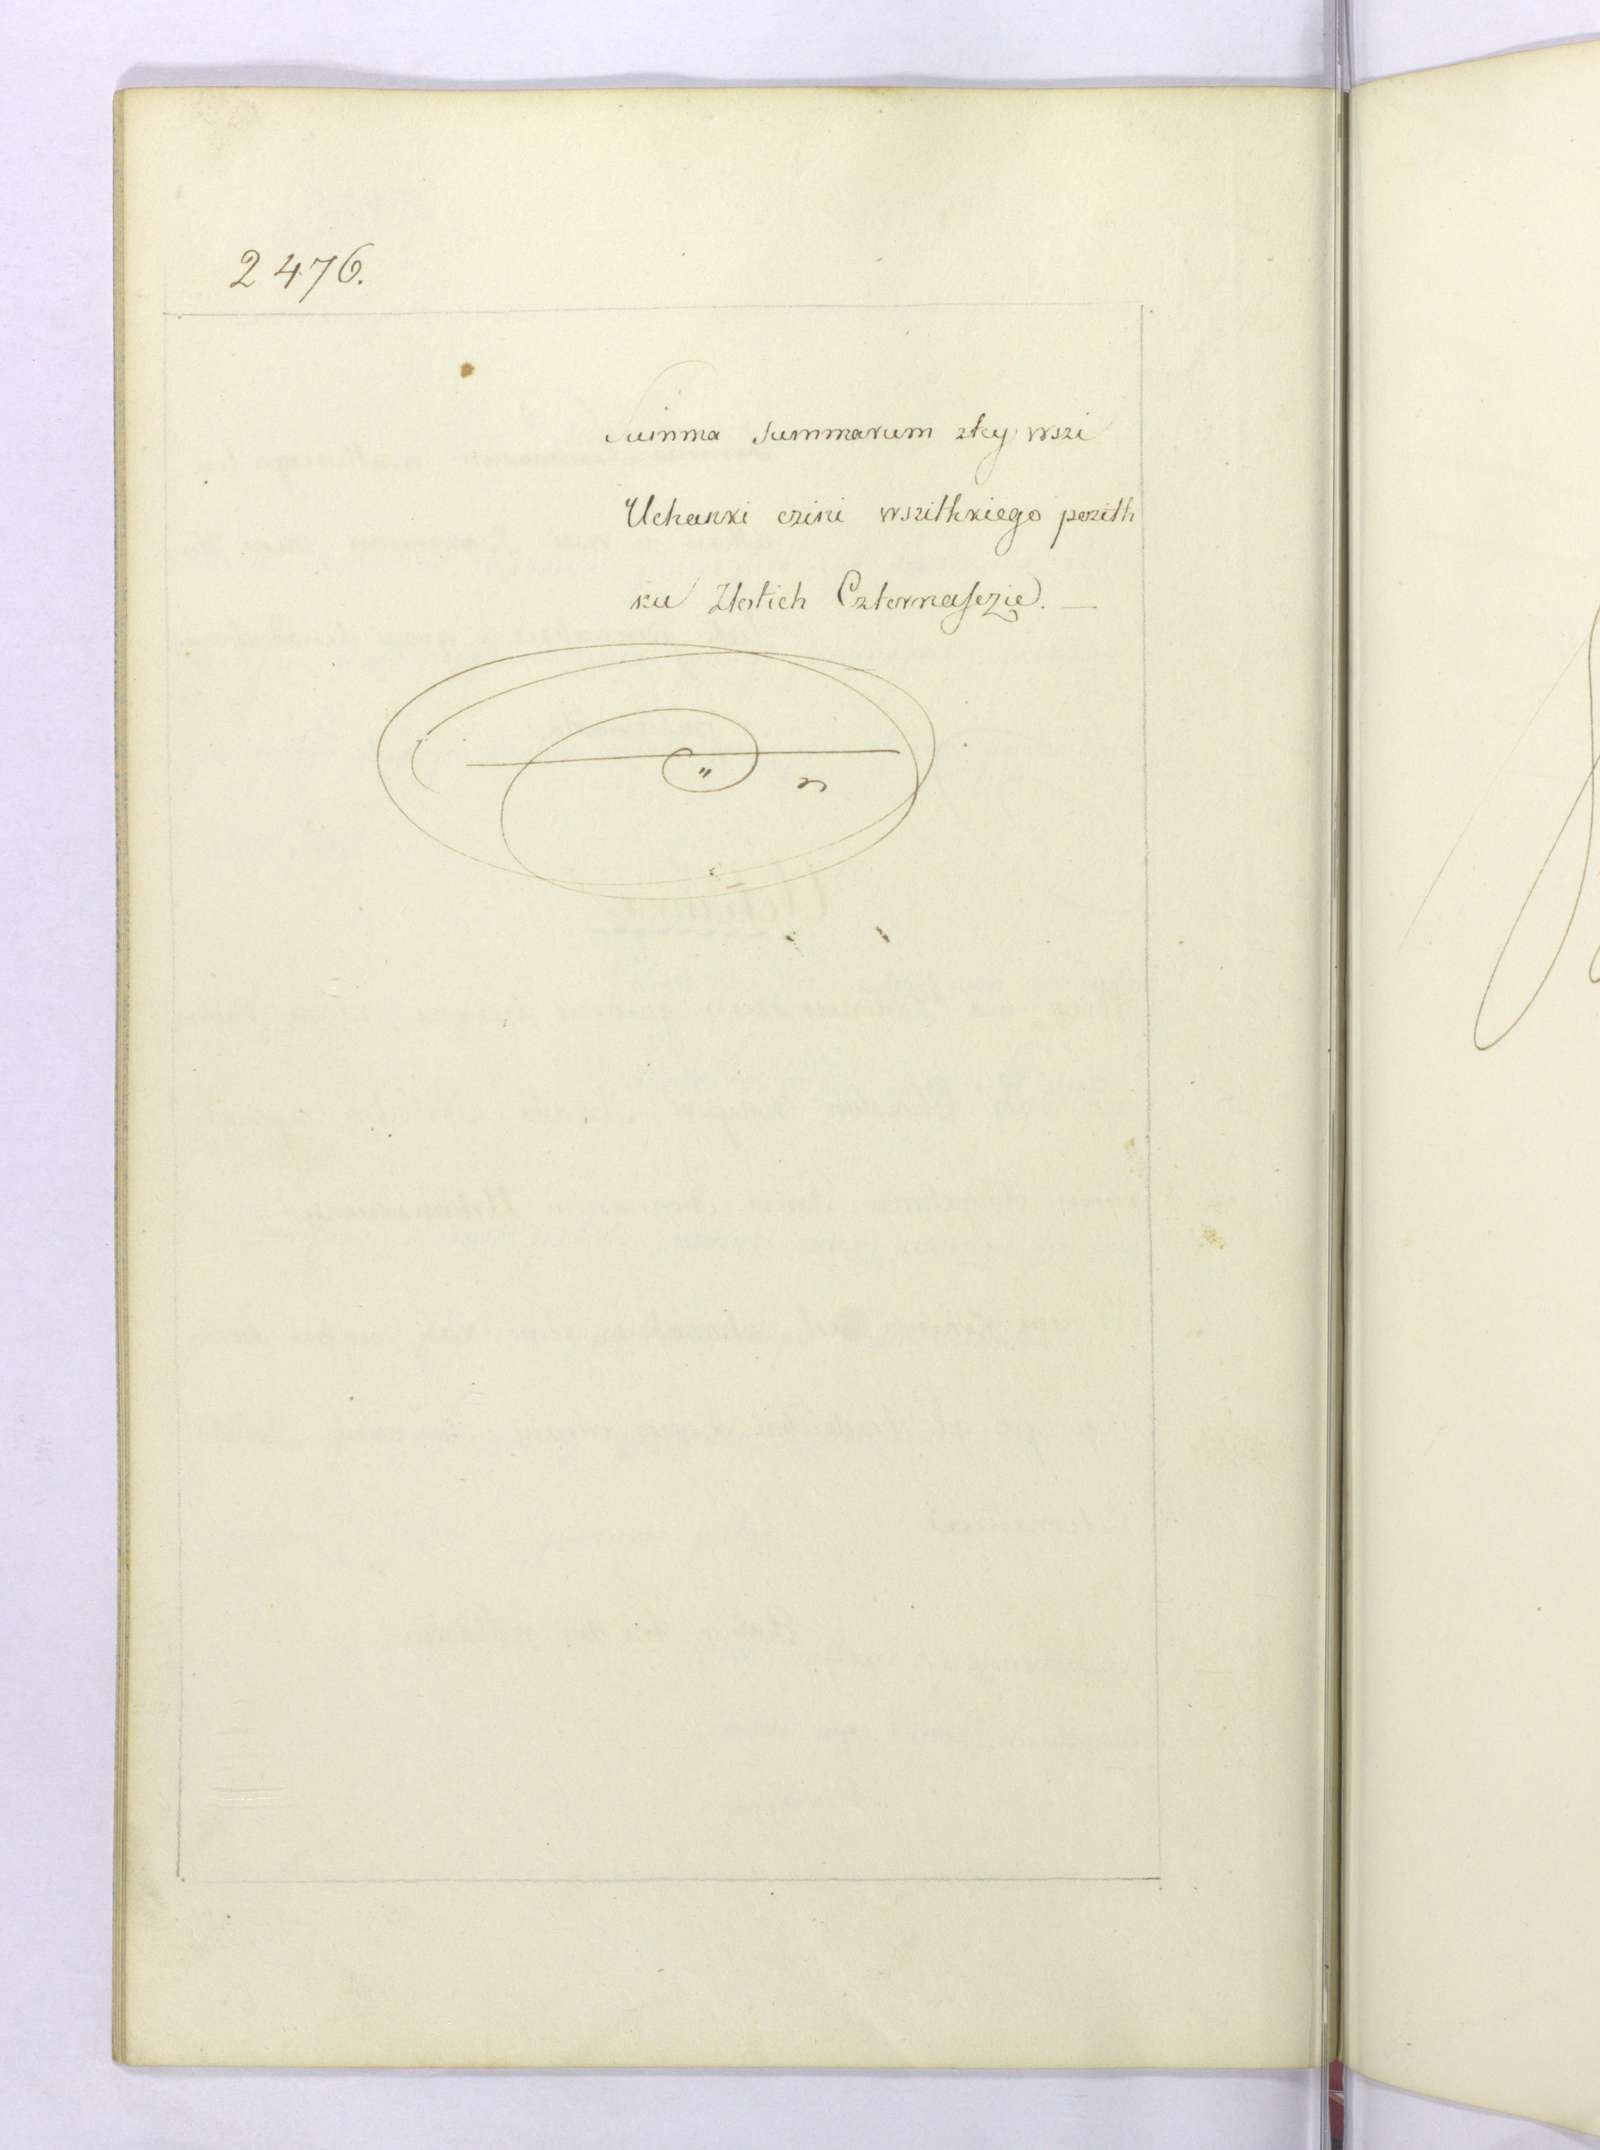 2476.
Summa Summarum ztey wszi
Uchanki czini wszitkiego pozith
ku Zlotich Czternasczie. —